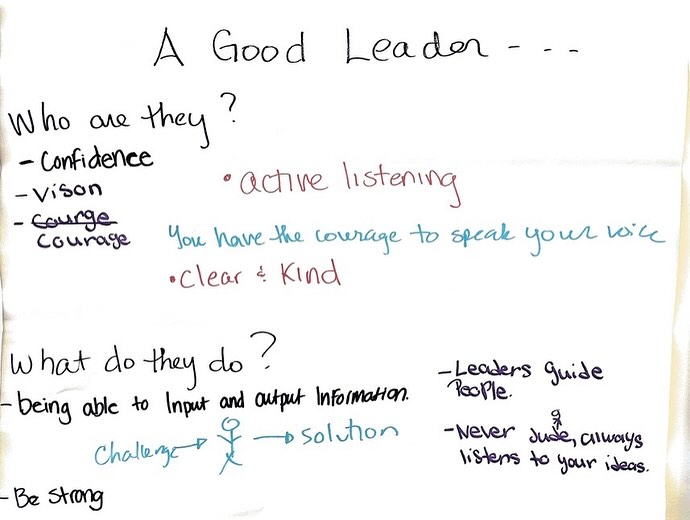 A Good Leader - - -
Who are they?
- Confidence
- Vison
• active listening
- Courge
Courage
You have the courage to speak your voice
• Clear & Kind
What do they do?
- being able to Input and output Information.
Challenge → → Solution
- Be Strong
- Leaders guide
People.
- Never Judge, always
listens to your ideas.